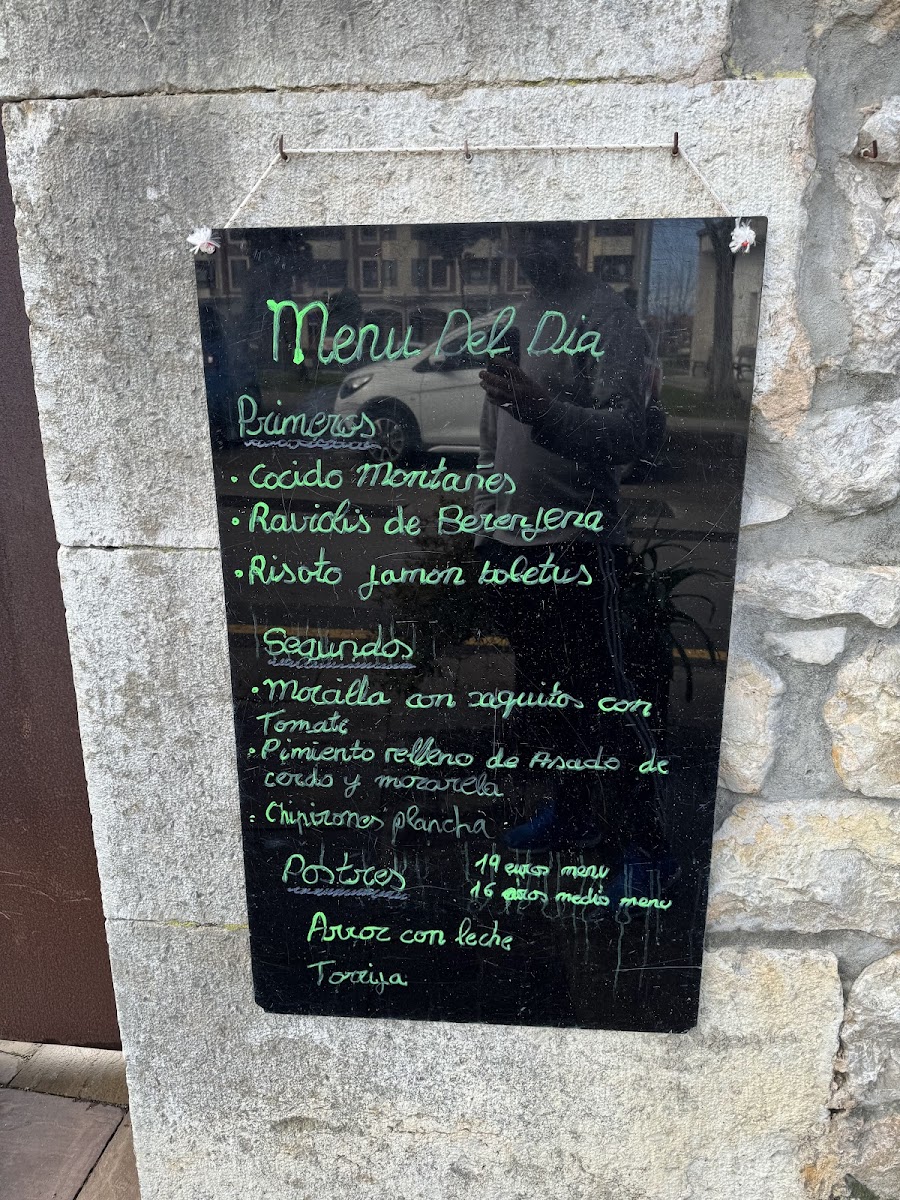 Menu Del Dia
Primeros
• Cocido Montañes
• Raviolis de Berenjena
• Risoto jamon boletus
Segundos
• Morcilla con xaquitos con
Tomate
• Pimiento relleno de Asado de
cerdo y mozarela
• Chipirones plancha
Postres
19 euros menu
16 euros medio menu
Arroz con leche
Torrija